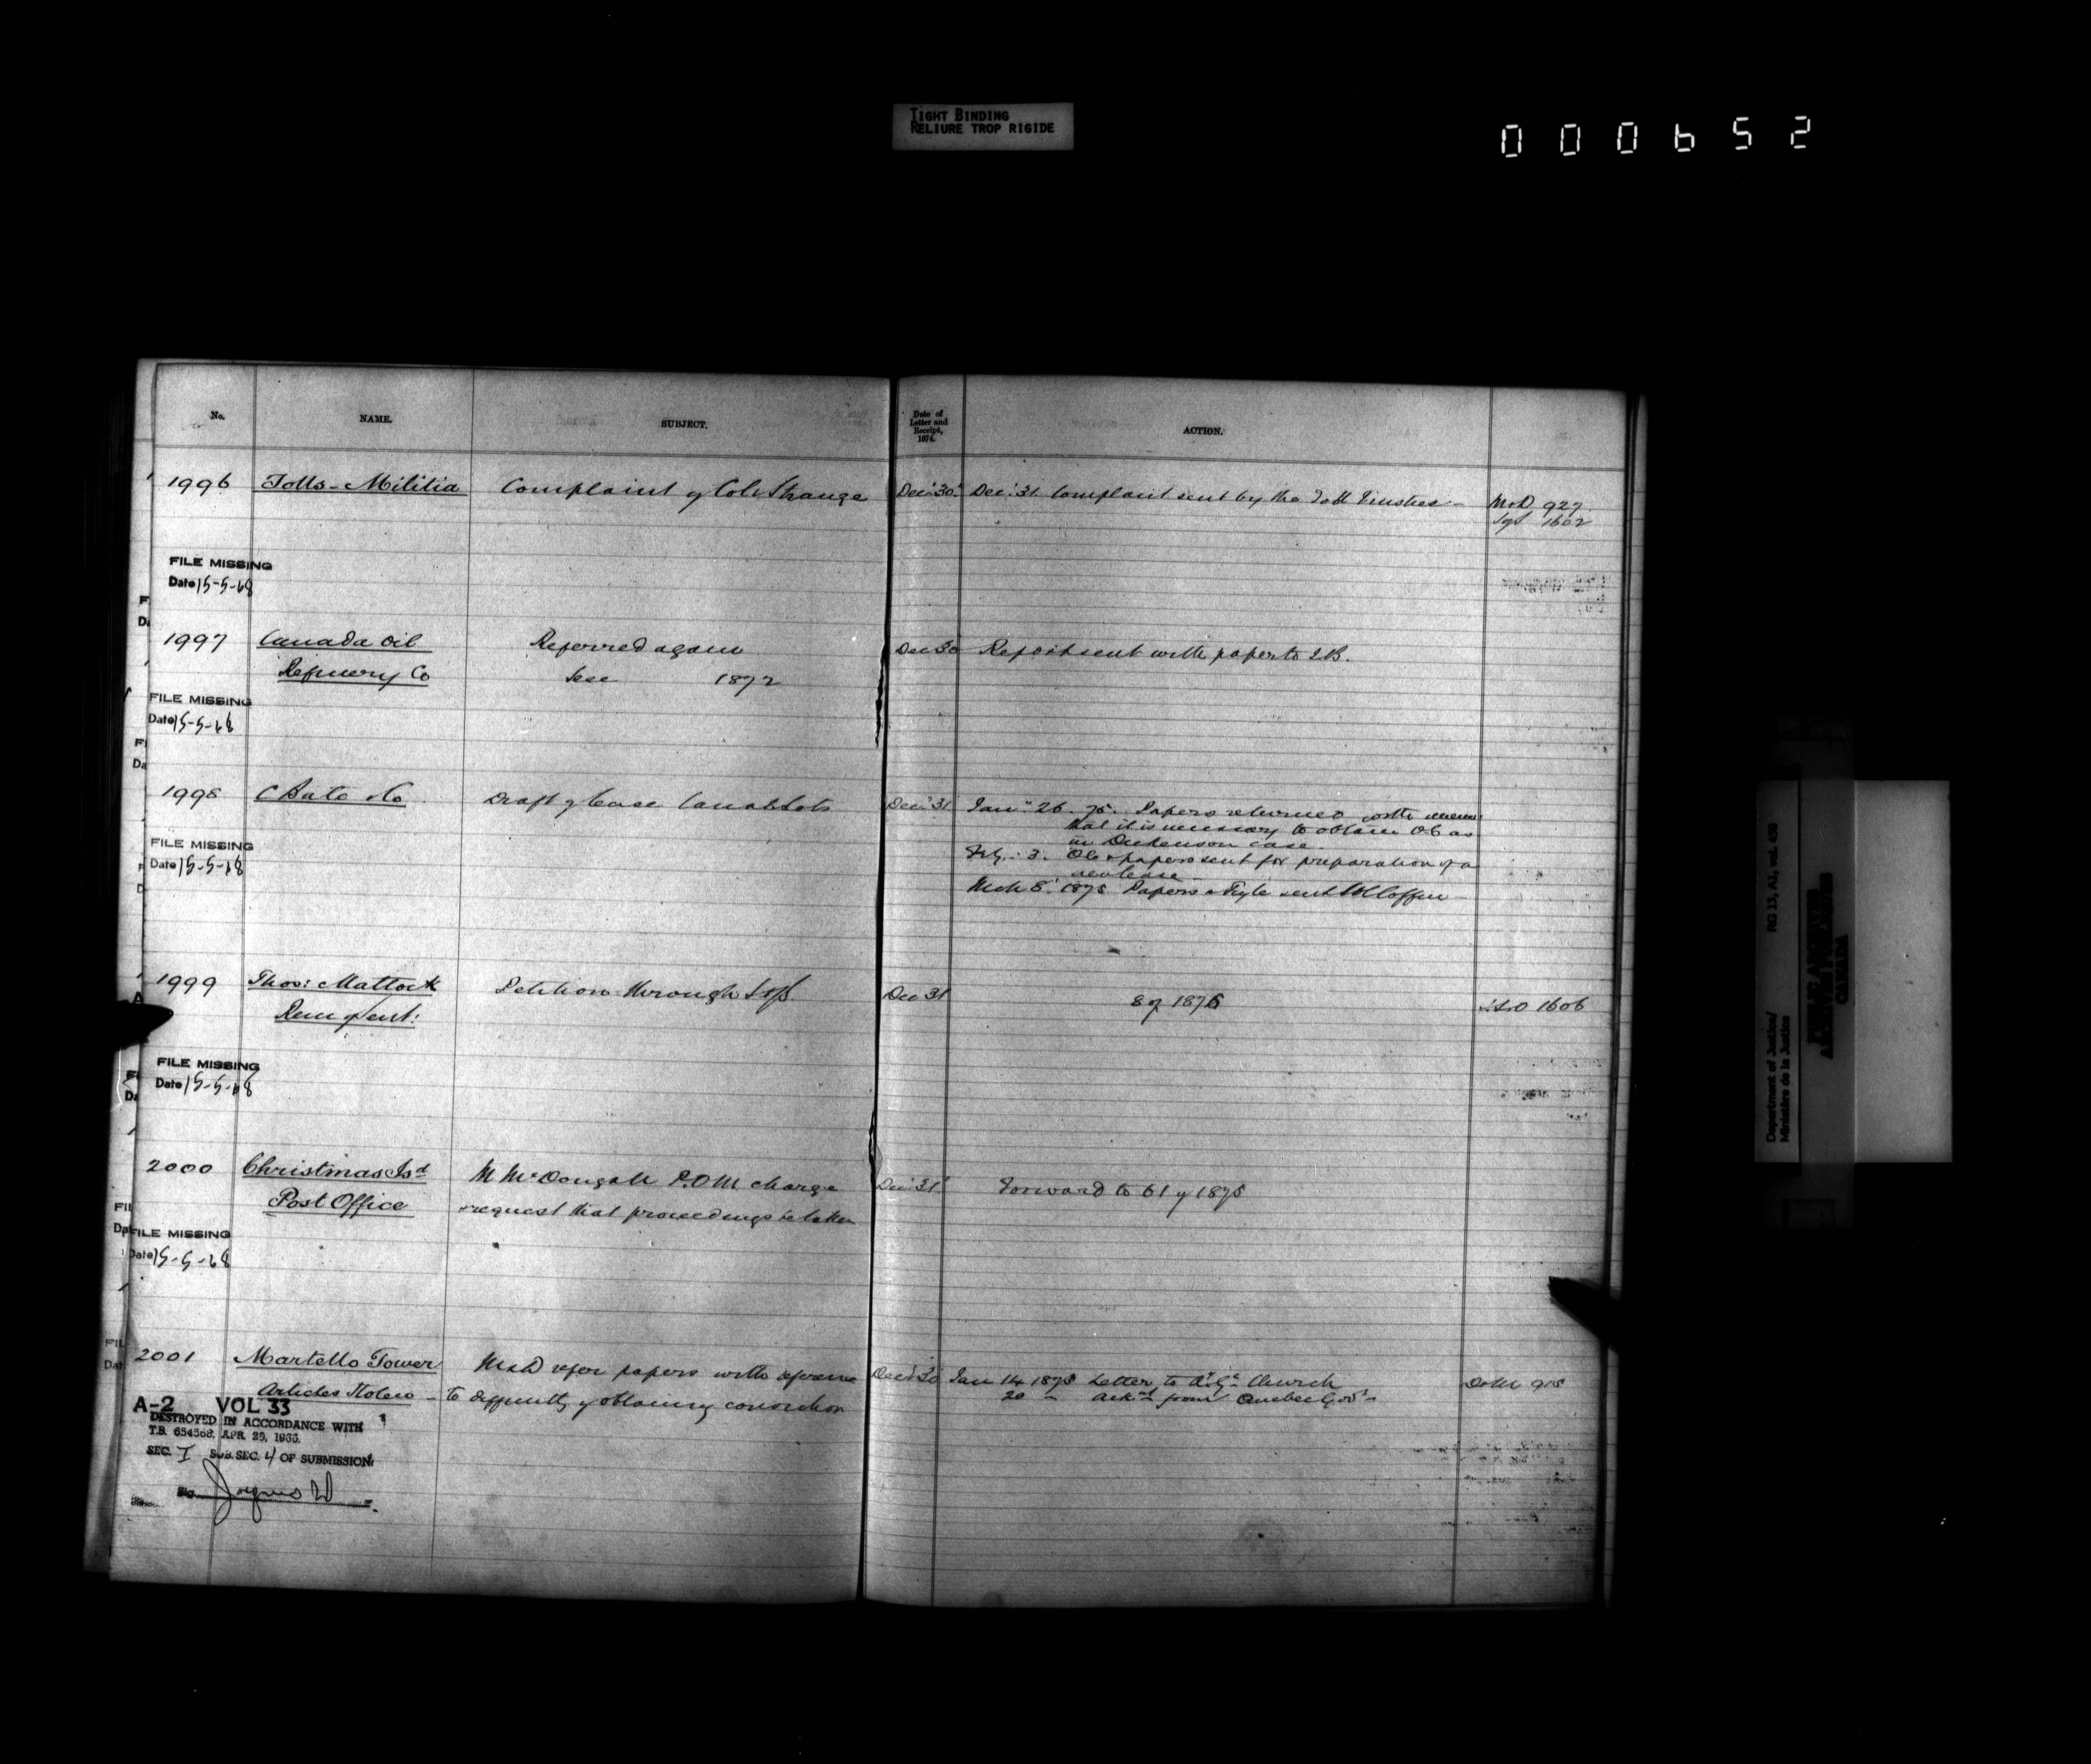 TIGHT BINDING
RELIURE TROP RIGIDE
000652
No. NAME. SUBJECT. Date of Letter and Receipt, 1874. ACTION.
1996 Tolls - Militia Complaint of Col. Strange Dec. 30 Dec. 31 Complaint sent by the Toll Trustees - M&D 927
1602
FILE MISSING
Date 15-5-68
1997 Canada Oil Referred again Dec 30 Report sent with papers to I.R.
Refinery Co See 1872
FILE MISSING
Date 15-5-68
1998 C Bate & Co Draft of lease Canal Lots Dec. 31 Jan. 26. 75. Papers returned with
that it is necessary to obtain O C as
in Dickenson case.
Feb. 3. O C & papers sent for preparation of a
new lease
Mch 8. 1875 Papers & Fyle sent Coffin
FILE MISSING
Date 15-5-68
1999 Thos: Mattock Petition through Dec 31 8 of 1875 1606
Rem of sent:
FILE MISSING
Date 15-5-68
2000 Christmas Isd M McDougall P.O.M. charge Dec. 31 Forward to 61 of 1875
Post Office request that proceedings be taken
FILE MISSING
Date 15-5-68
2001 Martello Tower M&D refer papers with reference Dec. 30 Jan 14 1875 Letter to A.G. Church 915
Articles Stolen - to difficulty of obtaining conviction 20 - Ackd from Quebec Govt -
A-2 VOL 33
DESTROYED IN ACCORDANCE WITH
T.B. 654568, APR. 29, 1966.
SEC. I SUB. SEC. 4 OF SUBMISSION
Department of Justice/
Ministère de la Justice
RG 13, A1, vol. 450
PUBLIC ARCHIVES
ARCHIVES PUBLIQUES
CANADA